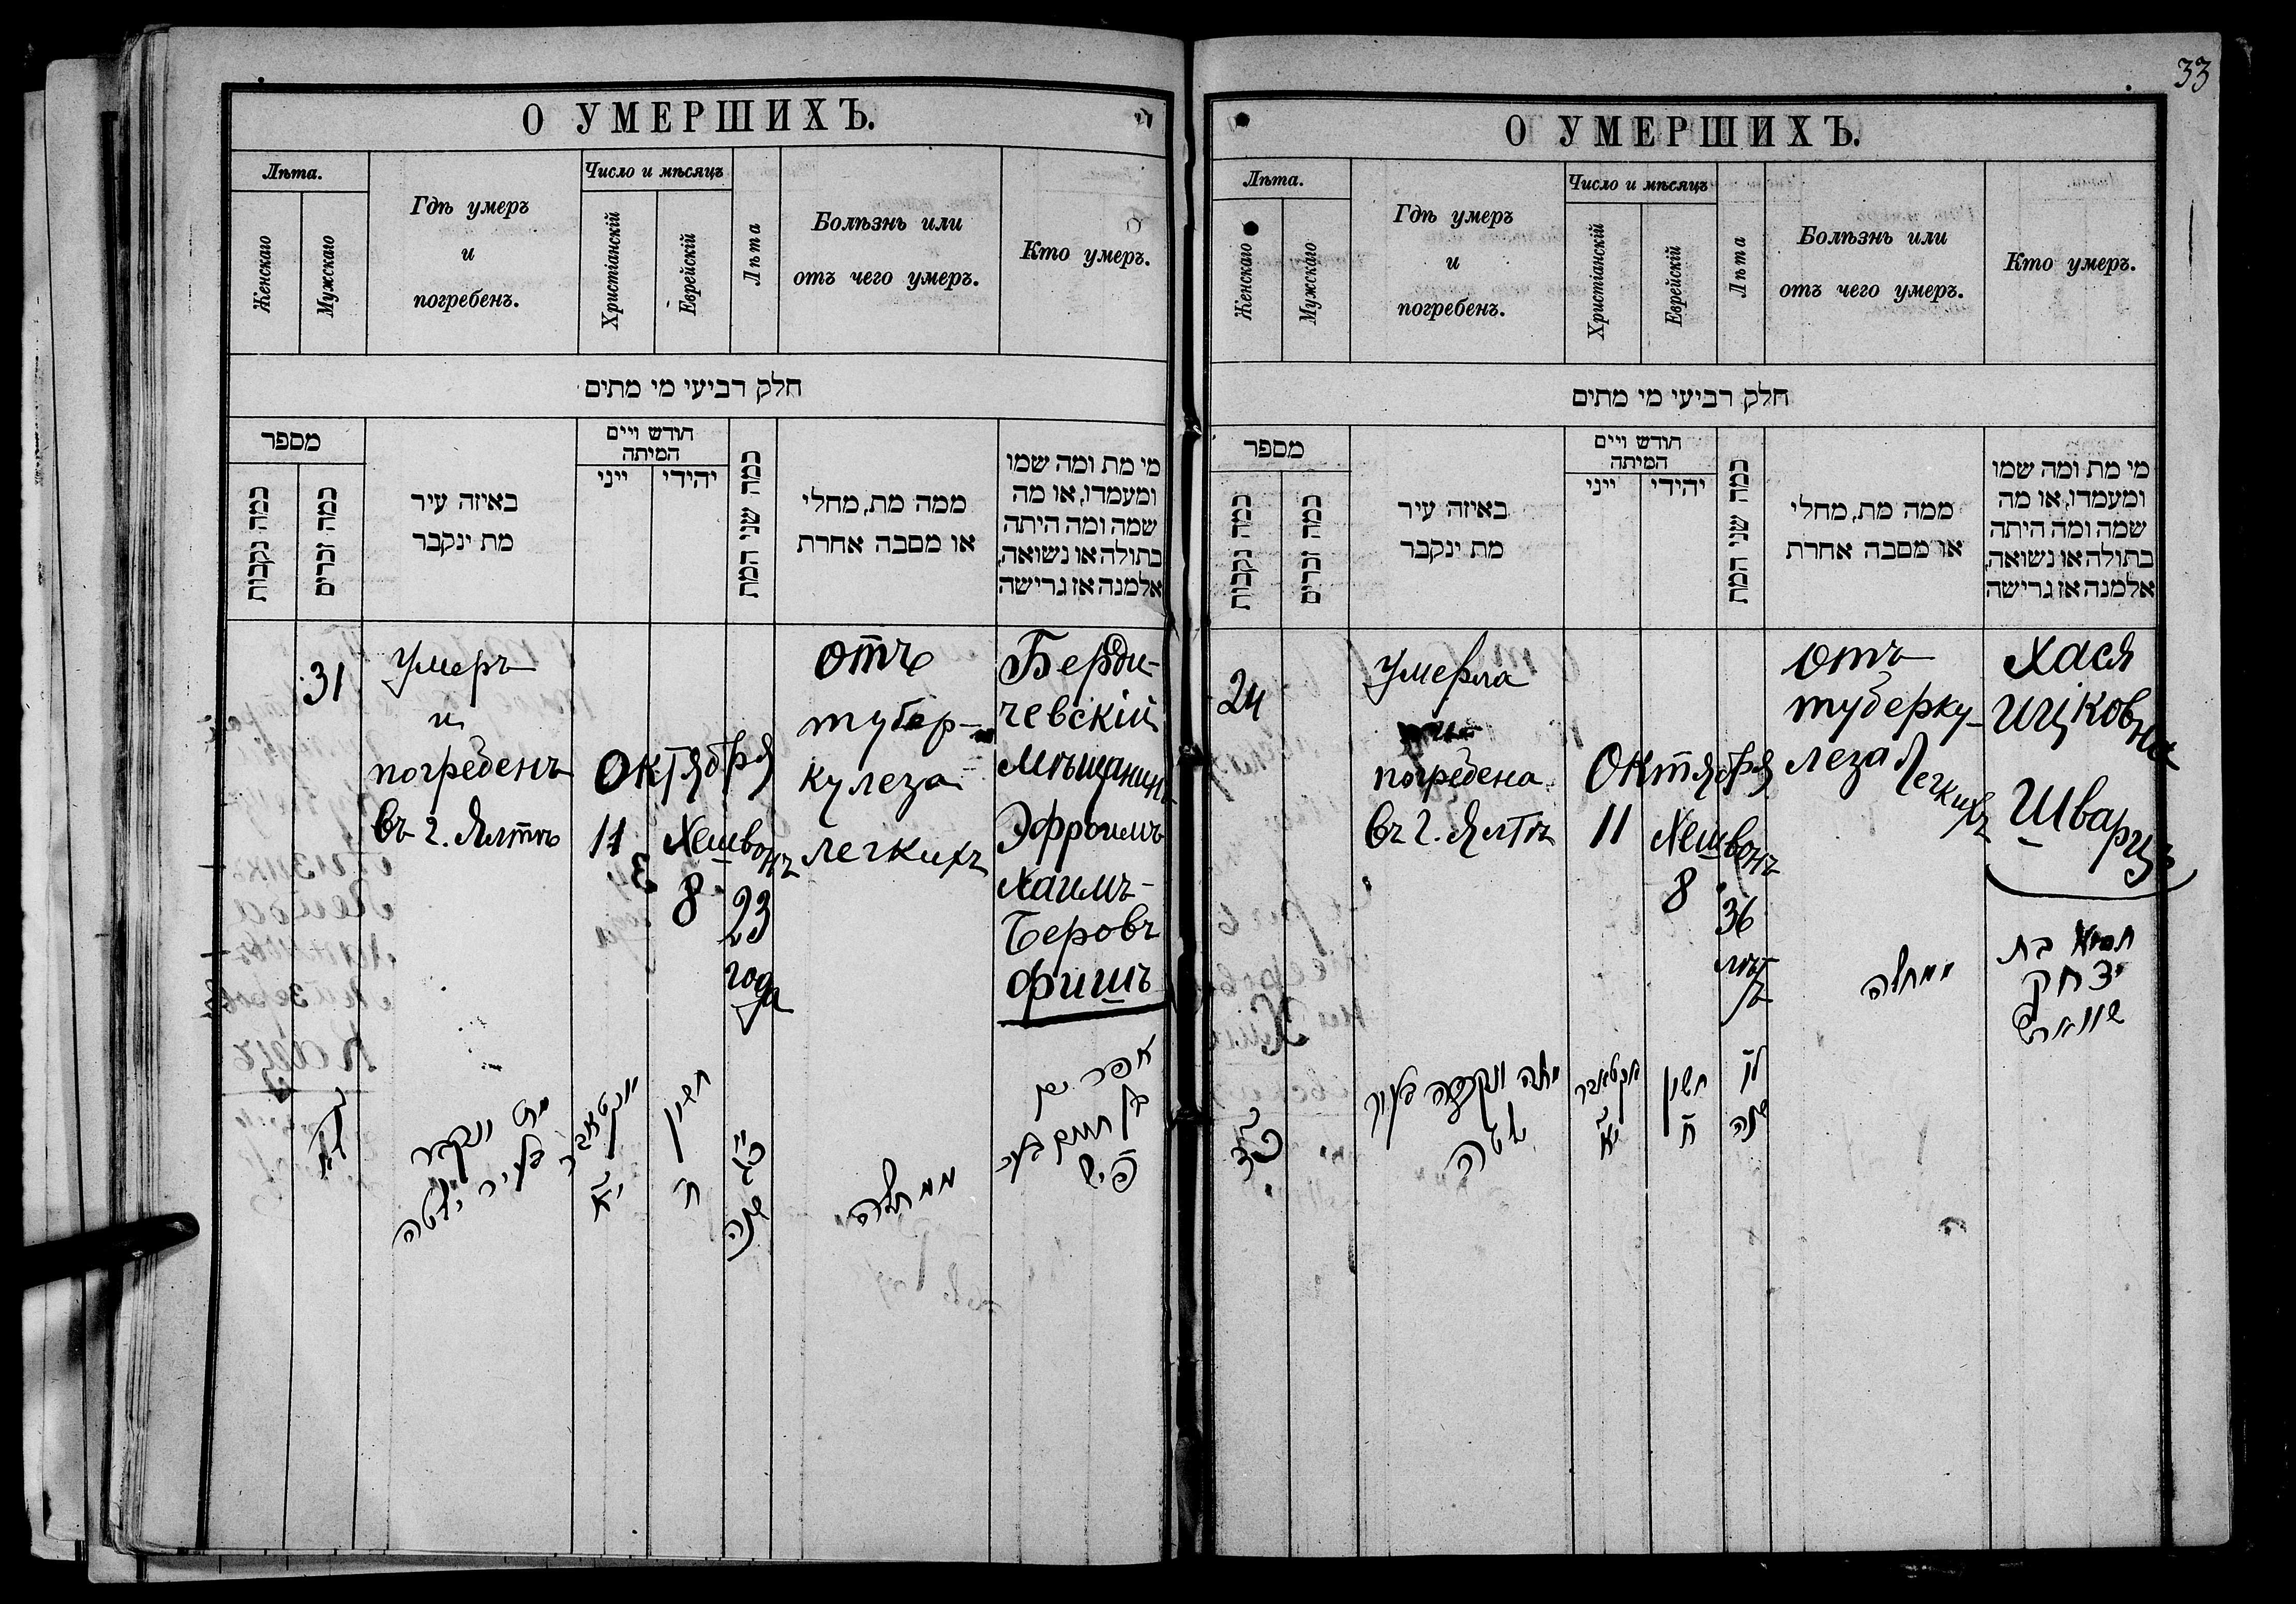 33
О УМЕРШИХЪ.
Лѣта.
Женскаго
Мужскаго
Гдѣ умеръ
и
погребенъ.
Число и мѣсяцъ
Христіанскій
Еврейскій
Лѣта
Болѣзнь или
отъ чего умеръ.
Кто умеръ.
חלק רביעי מי מתים
מספר
כמה נקבות
כמה זכרים
באיזה עיר
מת ינקבר
חודש ויים
המיתה
ייני
יהידי
כמה שני המת
ממה מת, מחלי
או מסבה אחרת
מי מת ומה שמו
ומעמדו, או מה
שמה ומה היתה
בתולה או נשואה,
אלמנה אז גרישה
31
Умеръ
и
погребенъ
въ г. Ялтѣ
Октября
11
Хешвонъ
8
23
года
Отъ
тубер-
кулеза
легкихъ
Берди-
чевскій
Мѣщанинъ
Эфроимъ
Хаимъ-
Беровъ
Фишъ
לא
מת ונקבר
בעיר יאלטה
אקטאבר
יא
חשון
ח
כג
שנה
ממחלה
אפרים
בן חיים בער
פיש
О УМЕРШИХЪ.
Лѣта.
Женскаго
Мужскаго
Гдѣ умеръ
и
погребенъ.
Число и мѣсяцъ
Христіанскій
Еврейскій
Лѣта
Болѣзнь или
отъ чего умеръ.
Кто умеръ.
חלק רביעי מי מתים
מספר
כמה נקבות
כמה זכרים
באיזה עיר
מת ינקבר
חודש ויים
המיתה
ייני
יהידי
כמה שני המת
ממה מת, מחלי
או מסבה אחרת
מי מת ומה שמו
ומעמדו, או מה
שמה ומה היתה
בתולה או נשואה,
אלמנה אז גרישה
24
Умерла
погребена
въ г. Ялтѣ
Октября
11
Хешвонъ
8
36
лѣтъ
Отъ
туберку-
леза Легкихъ
Хася
Ицковна
Шварцъ
כד
מתה ונקברה בעיר
יאלטה
אקטאבר
יא
חשון
ח
לו
שנה
ממחלה
חסיא בת
יצחק
שווארץ